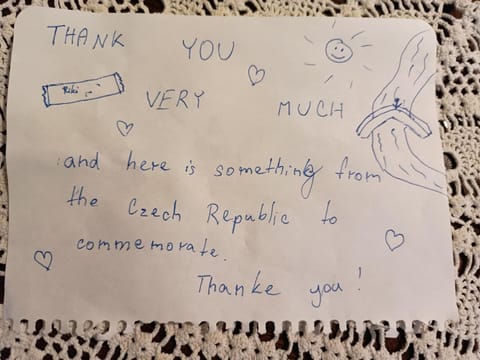 THANK YOU
Riki :-)
VERY MUCH
and here is something from
the Czech Republic to
commemorate.
Thanke you!